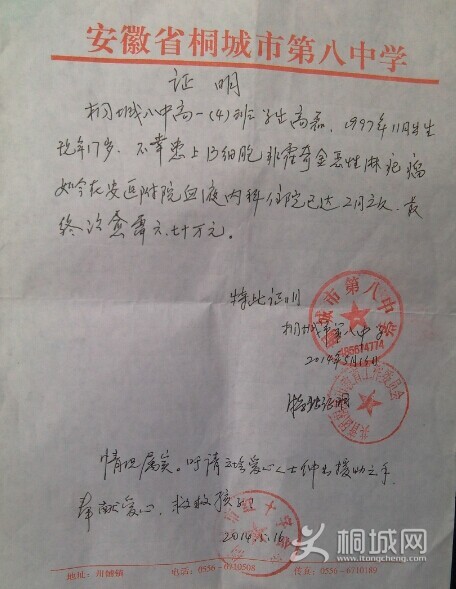 安徽省桐城市第八中学
证 明
桐城八中高一(4)班学生高磊,1997年11月出生
现年17岁,不幸患上B细胞非霍奇金恶性淋巴瘤
如今在安医附院血液内科住院已达2月之久,最
终治愈需六、七十万元。
特此证明
桐城市第八中学
2014年5月16日
情况属实。呼请社会爱心人士伸出援助之手,
奉献爱心,救救孩子。
2014.5.16
地址:用城镇 电话:0556-6910508 传真:0556-6710189
桐城网
www.itongcheng.com